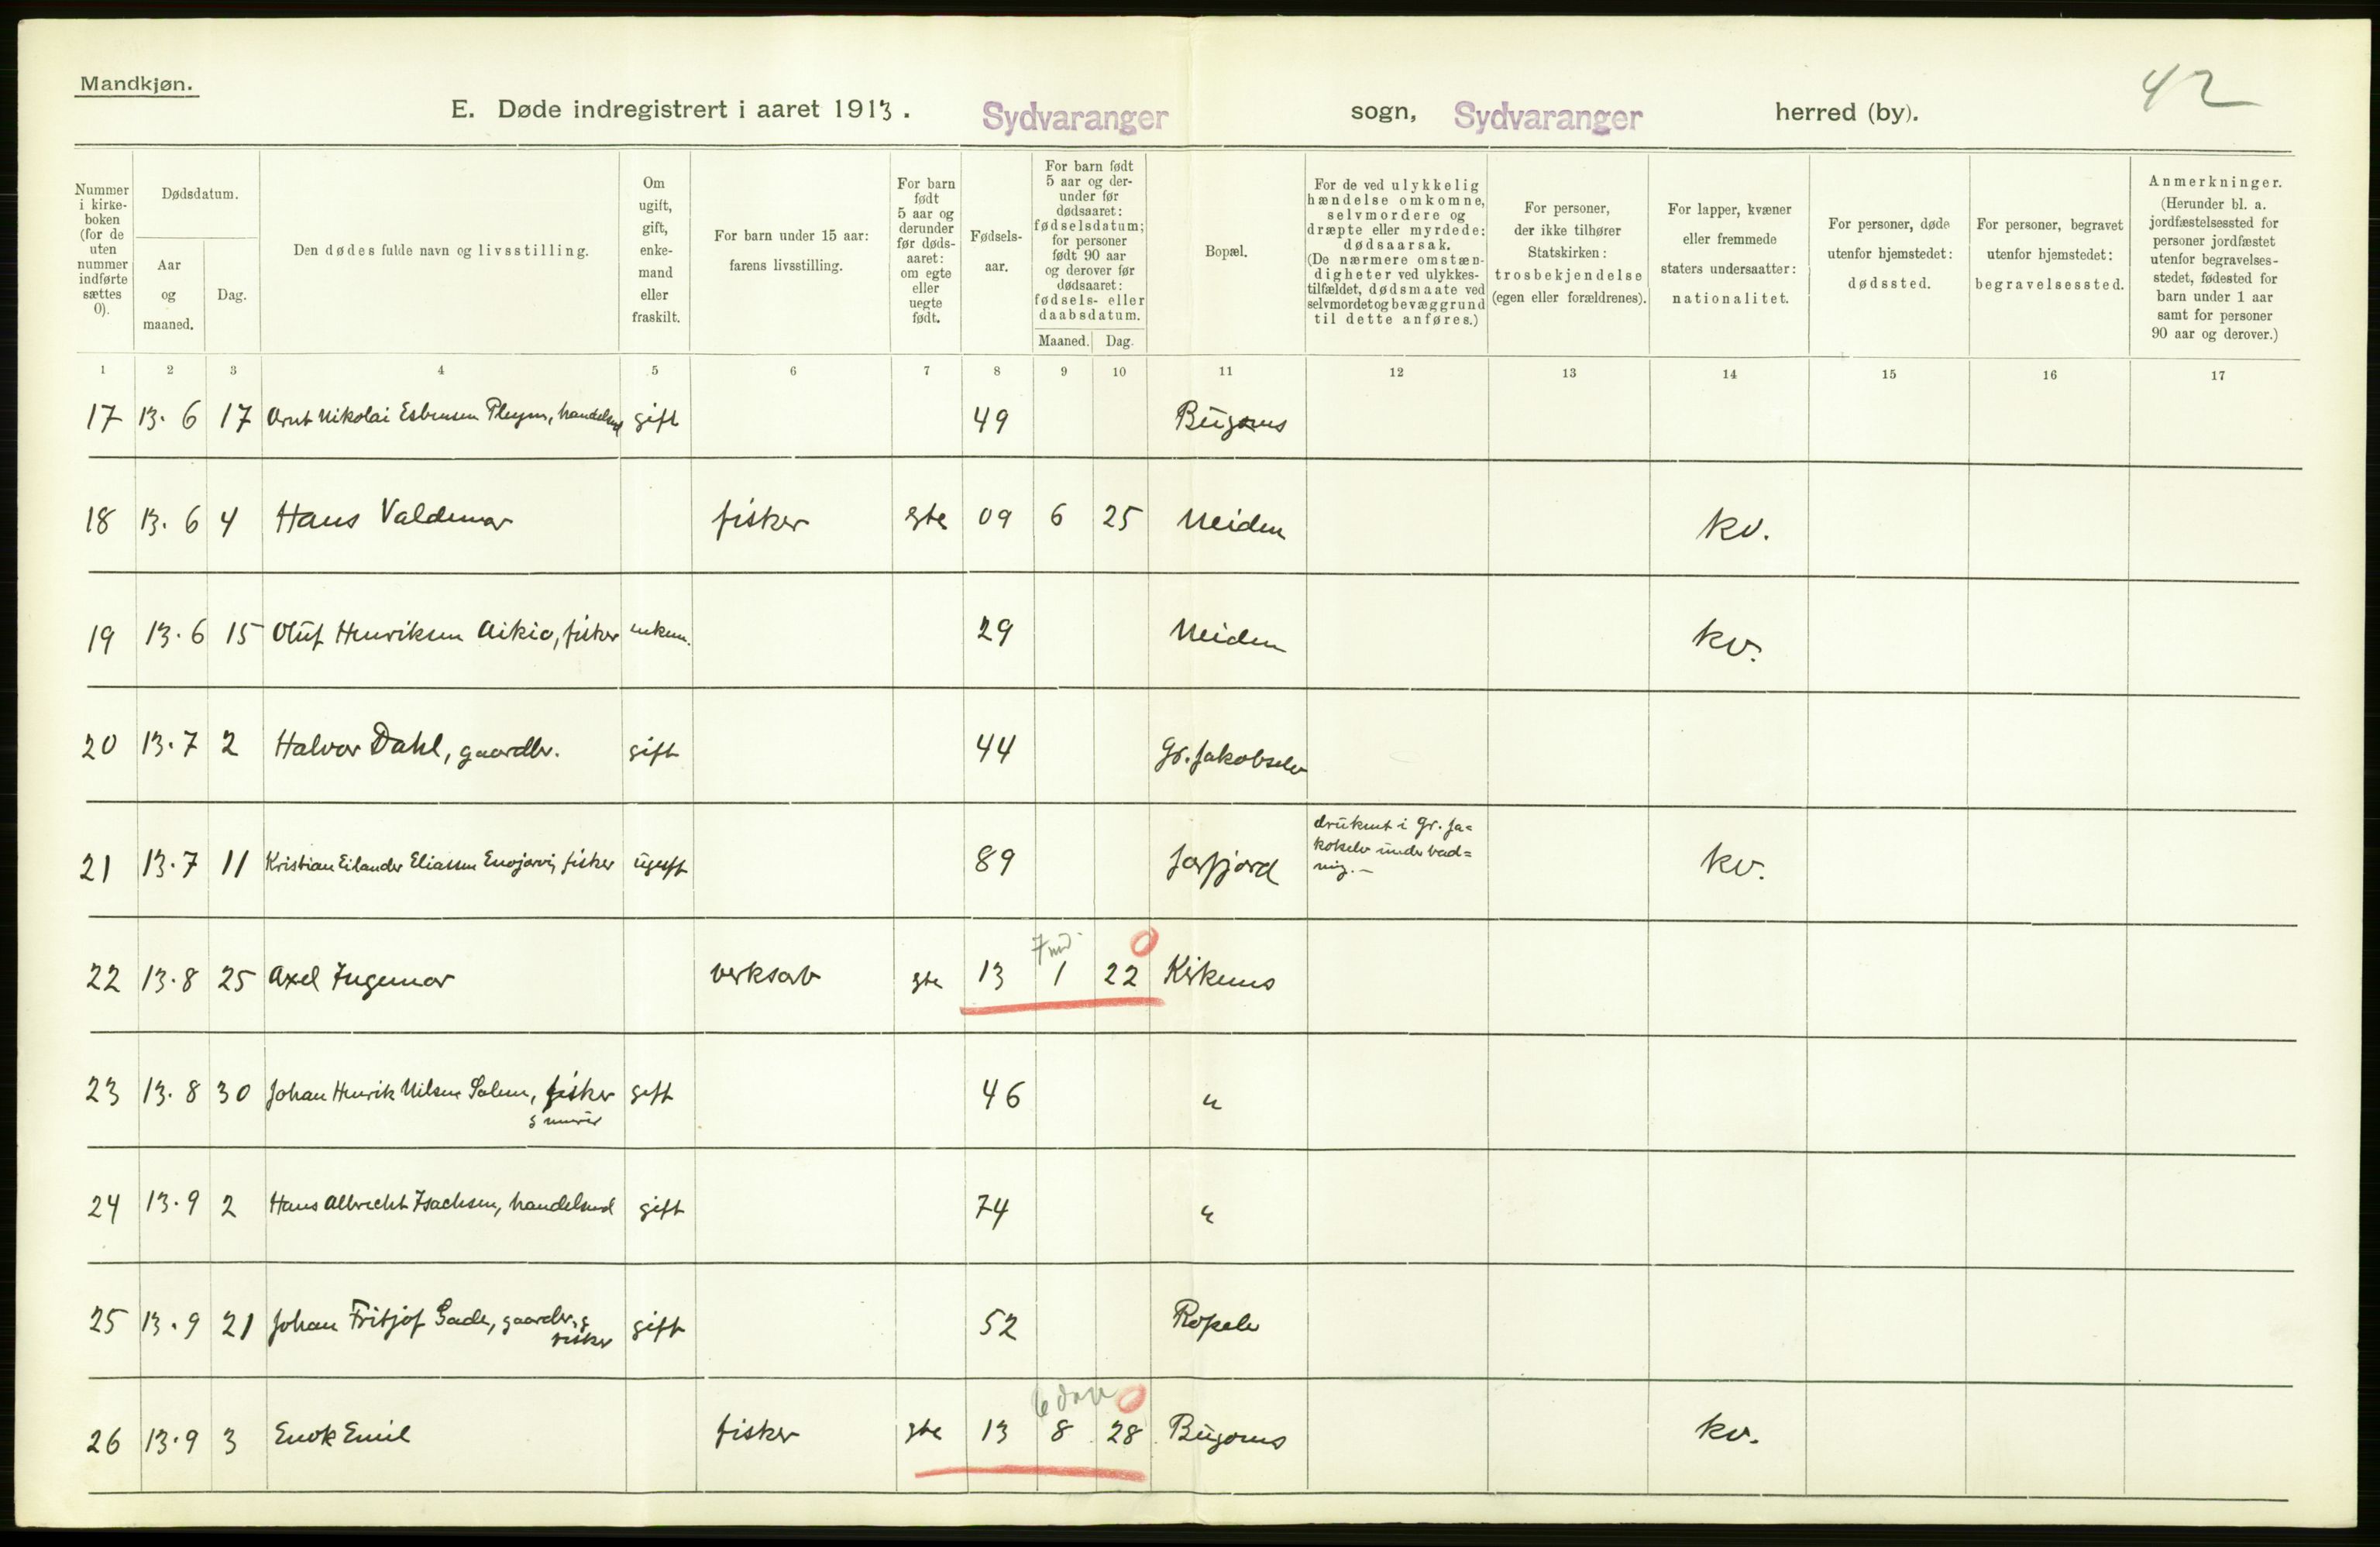 Mandkjøn.
42
E. Døde indregistrert i aaret 1913. Sydvaranger sogn, Sydvaranger herred (by).
Nummer i kirke- boken (for de uten nummer indførte sættes 0).
Dødsdatum.
Aar og maaned.
Dag.
Den dødes fulde navn og livsstilling.
Om ugift, gift, enke- mand eller fraskilt.
For barn under 15 aar: farens livsstilling.
For barn født 5 aar og derunder før døds- aaret: om egte eller uegte født.
Fødsels- aar.
For barn født 5 aar og der- under før dødsaaret: fødselsdatum; for personer født 90 aar og derover før dødsaaret: fødsels- eller daabsdatum.
Maaned. Dag.
Bopæl.
For de ved ulykkelig hændelse omkomne, selvmordere og dræpte eller myrdede: dødsaarsak. (De nærmere omstæn- digheter ved ulykkes- tilfældet, dødsmaate ved selvmordet og bevæggrund til dette anføres.)
For personer, der ikke tilhører Statskirken: trosbekjendelse (egen eller forældrenes).
For lapper, kvæner eller fremmede staters undersaatter: nationalitet.
For personer, døde utenfor hjemstedet: dødssted.
For personer, begravet utenfor hjemstedet: begravelsessted.
Anmerkninger. (Herunder bl. a. jordfæstelsessted for personer jordfæstet utenfor begravelses- stedet, fødested for barn under 1 aar samt for personer 90 aar og derover.)
1 2 3 4 5 6 7 8 9 10 11 12 13 14 15 16 17
17 13. 6 17 Arnt Nikolai Esbensen Pleym, handelsm gift 49 Bugønes
18 13. 6 4 Hans Valdemar fisker gte 09 6 25 Neiden kv.
19 13. 6 15 Oluf Henriksen Aikio, fisker enkem. 29 Neiden kv.
20 13. 7 2 Halvor Dahl, gaardbr. gift 44 Gr. Jakobselv
21 13. 7 11 Kristian Eilander Eliassen Enojarvi, fisker ugift 89 Jarfjord druknet i Gr. Ja= kobselv under bad= ning. – kv.
7 md.
0
22 13. 8 25 Axel Ingemar verksarb gte 13 1 22 Kirkenes
23 13. 8 30 Johan Henrik Nilsen Salem, fisker gift 46 "
24 13. 9 2 Hans Albrecht Isachsen, handelsmd gift 74 "
25 13. 9 21 Johan Fritjof Gade, gaardbr. g gift 52 Ropelv
fisker
6 dage 0
26 13. 9 3 Enok Emil fisker gte 13 8 28 Bugønes kv.